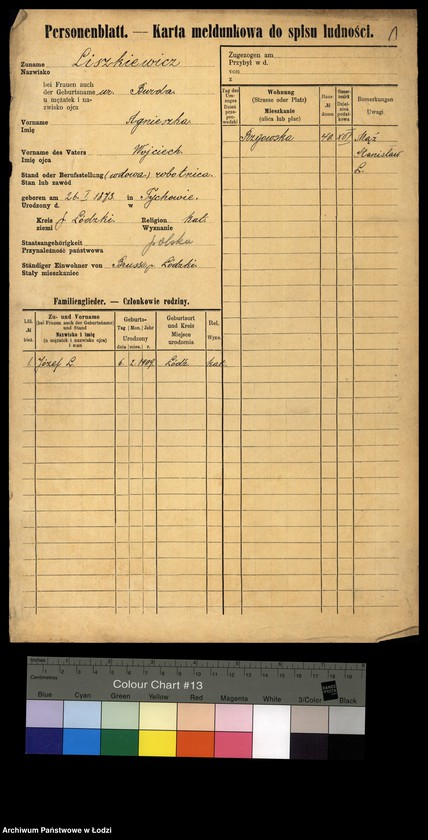 Personenblatt. — Karta meldunkowa do spisu ludności.
Zuname
Nazwisko
Liszkiewicz
bei Frauen auch
der Geburtsname
u mężatek i na-
zwisko ojca
ur. Burda
Vorname
Imię
Agnieszka
Vorname des Vaters
Imię ojca
Wojciech
Stand oder Berufsstellung
Stan lub zawód
(wdowa) robotnica
geboren am 26. I 1873. in Tychowie.
Urodzony d. w
Kreis p. Łódzki. Religion kat.
ziemi Wyznanie
Staatsangehörigkeit
Przynależność państwowa
polska
Ständiger Einwohner von
Stały mieszkaniec
Łódzki
Familienglieder. — Członkowie rodziny.
Zu- und Vorname
(bei Frauen auch der Geburtsname)
und Stand
Nazwisko i imię
(u mężatek i nazwisko ojca)
i stan
Geburts-
Tag Mon. Jahr
Urodzony
dnia mies. r.
Geburtsort
und Kreis
Miejsce
urodzenia
Rel.
Wyzn.
1. Józef L. 6. 2. 1909. Łódź. kat.
Zugezogen am
Przybył w d.
von
z
Tag des
Um-
zuges
Dzień
prze-
prowadzki
Wohnung
(Strasse oder Platz)
Mieszkanie
(ulica lub plac)
Haus-
№
domu
Bemerkungen
Uwagi
40. XIII Mąż
Stanisław
L.
Inches
Centimetres
Colour Chart #13
Blue Cyan Green Yellow Red Magenta White 3/Color Black
Archiwum Państwowe w Łodzi